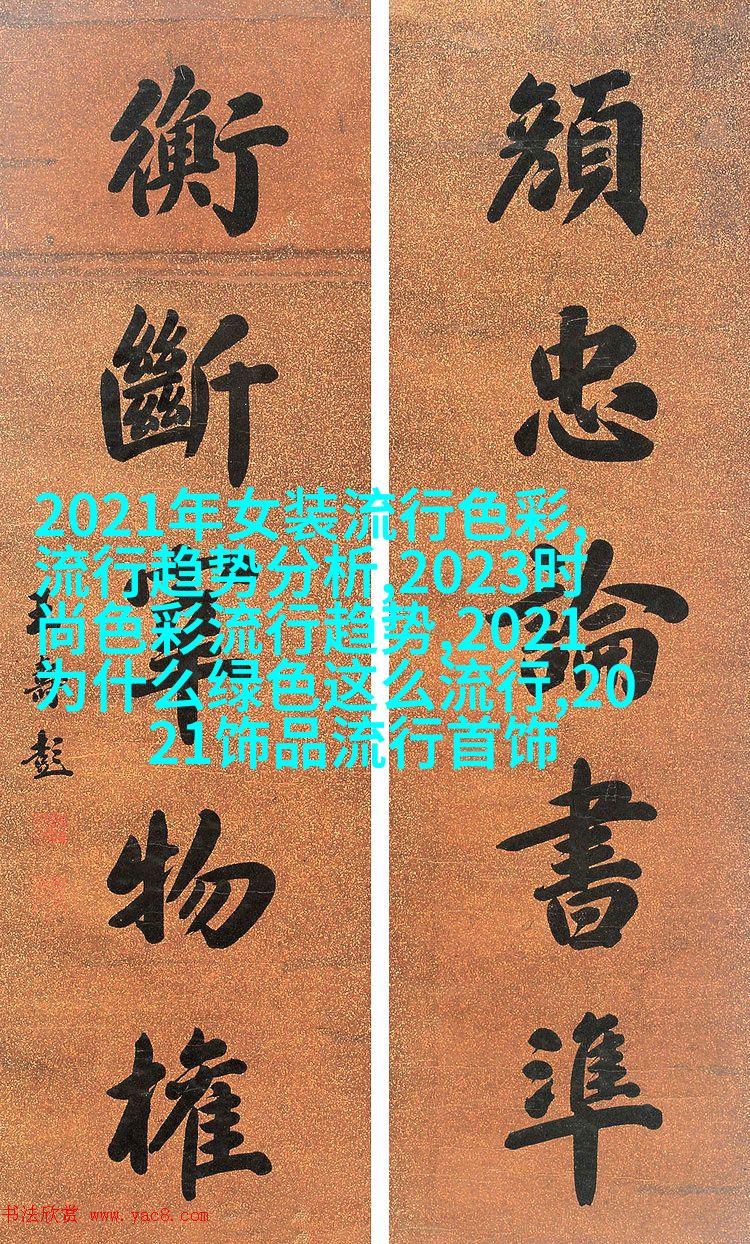 忠論書準
衡斷物權
彭
2021年女装流行色彩,
流行趋势分析,2023时
尚色彩流行趋势,2021
为什么绿色这么流行,20
21饰品流行首饰
书法欣赏 www.yac8.com